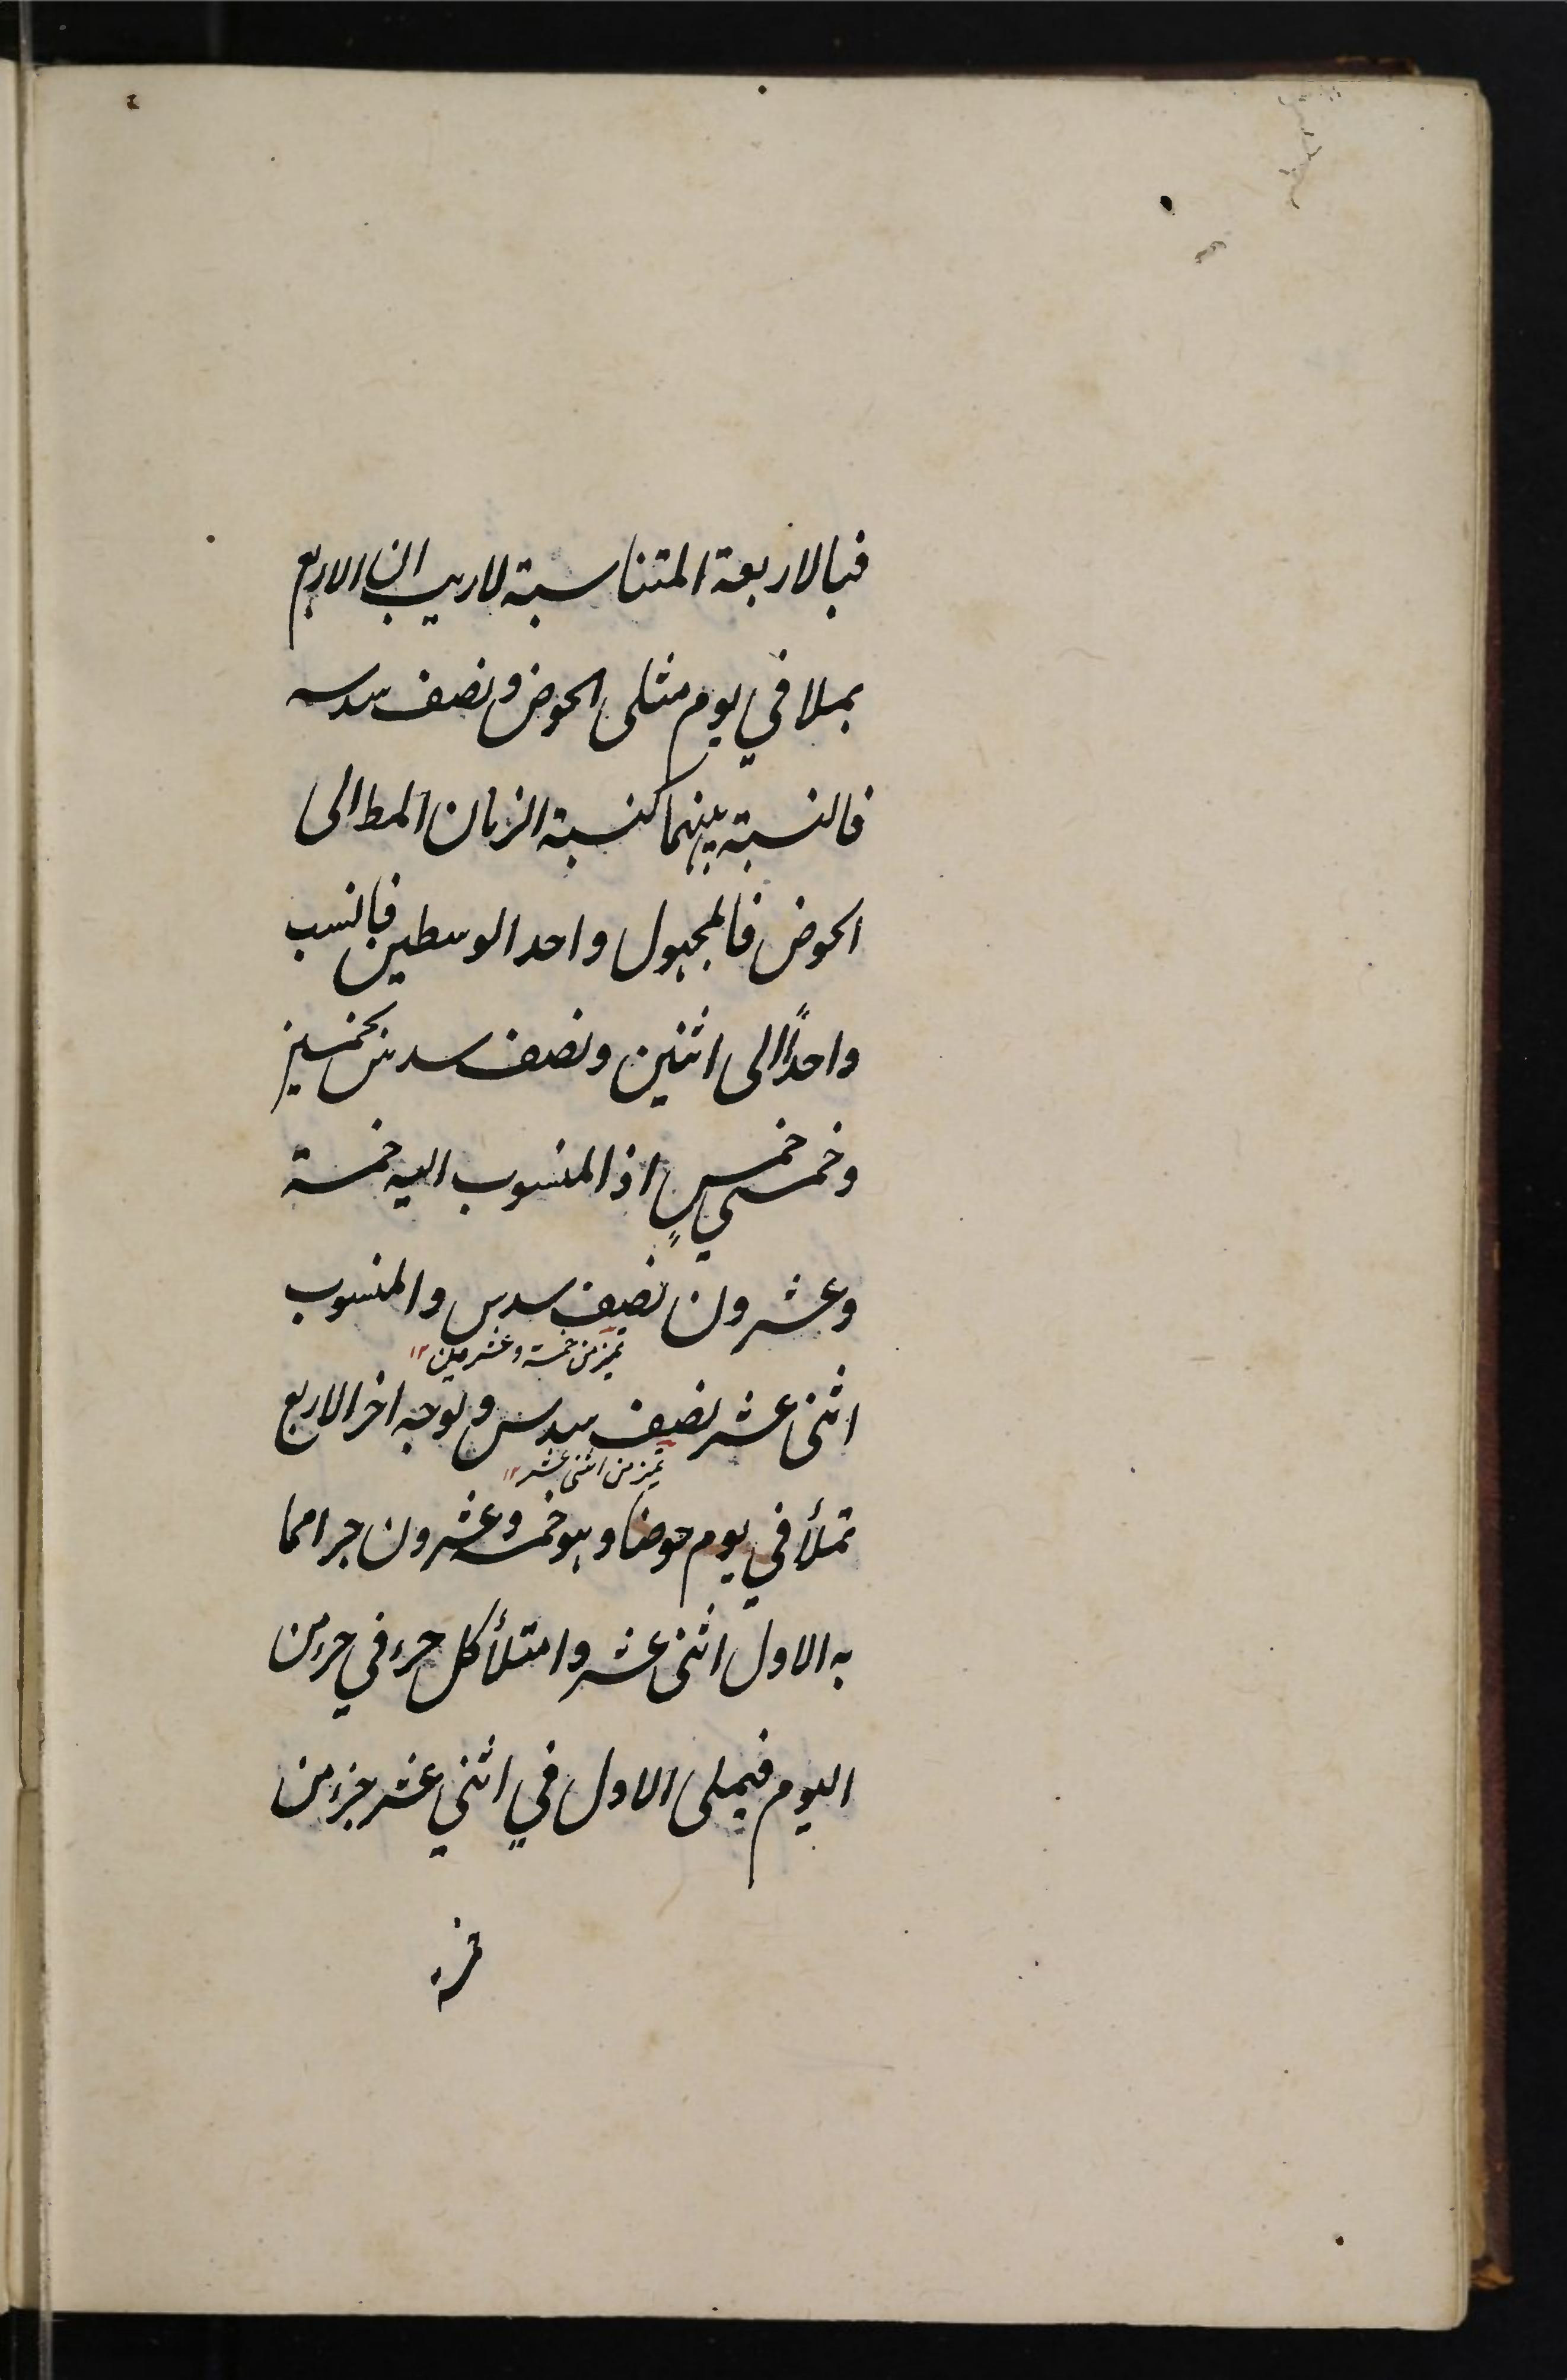 فبالاربعة المتناسبة لاريب ان الاربع
يملا في يوم مثلى الحوض ونصف سدسه
فالنسبة بينهما كنسبة الزمان المط الى
الحوض فالمجهول واحد الوسطين فانسب
واحدًا الى اثنين ونصف سدس بخمسين
وخمسي خمسٍ اذ المنسوب اليه خمسة
وعشرون نصف سدس والمنسوب
تميز من خمسة وعشرين ١٢
اثنى عشر نصف سدس وبوجه اخر الاربع
تميز من اثنى عشر ١٢
تملأ في يوم حوضا وهو خمسة وعشرون جزا مما
به الاول اثنى عشر وامتلأ كل جزء في جزء من
اليوم فيملى الاول في اثني عشر جزء من